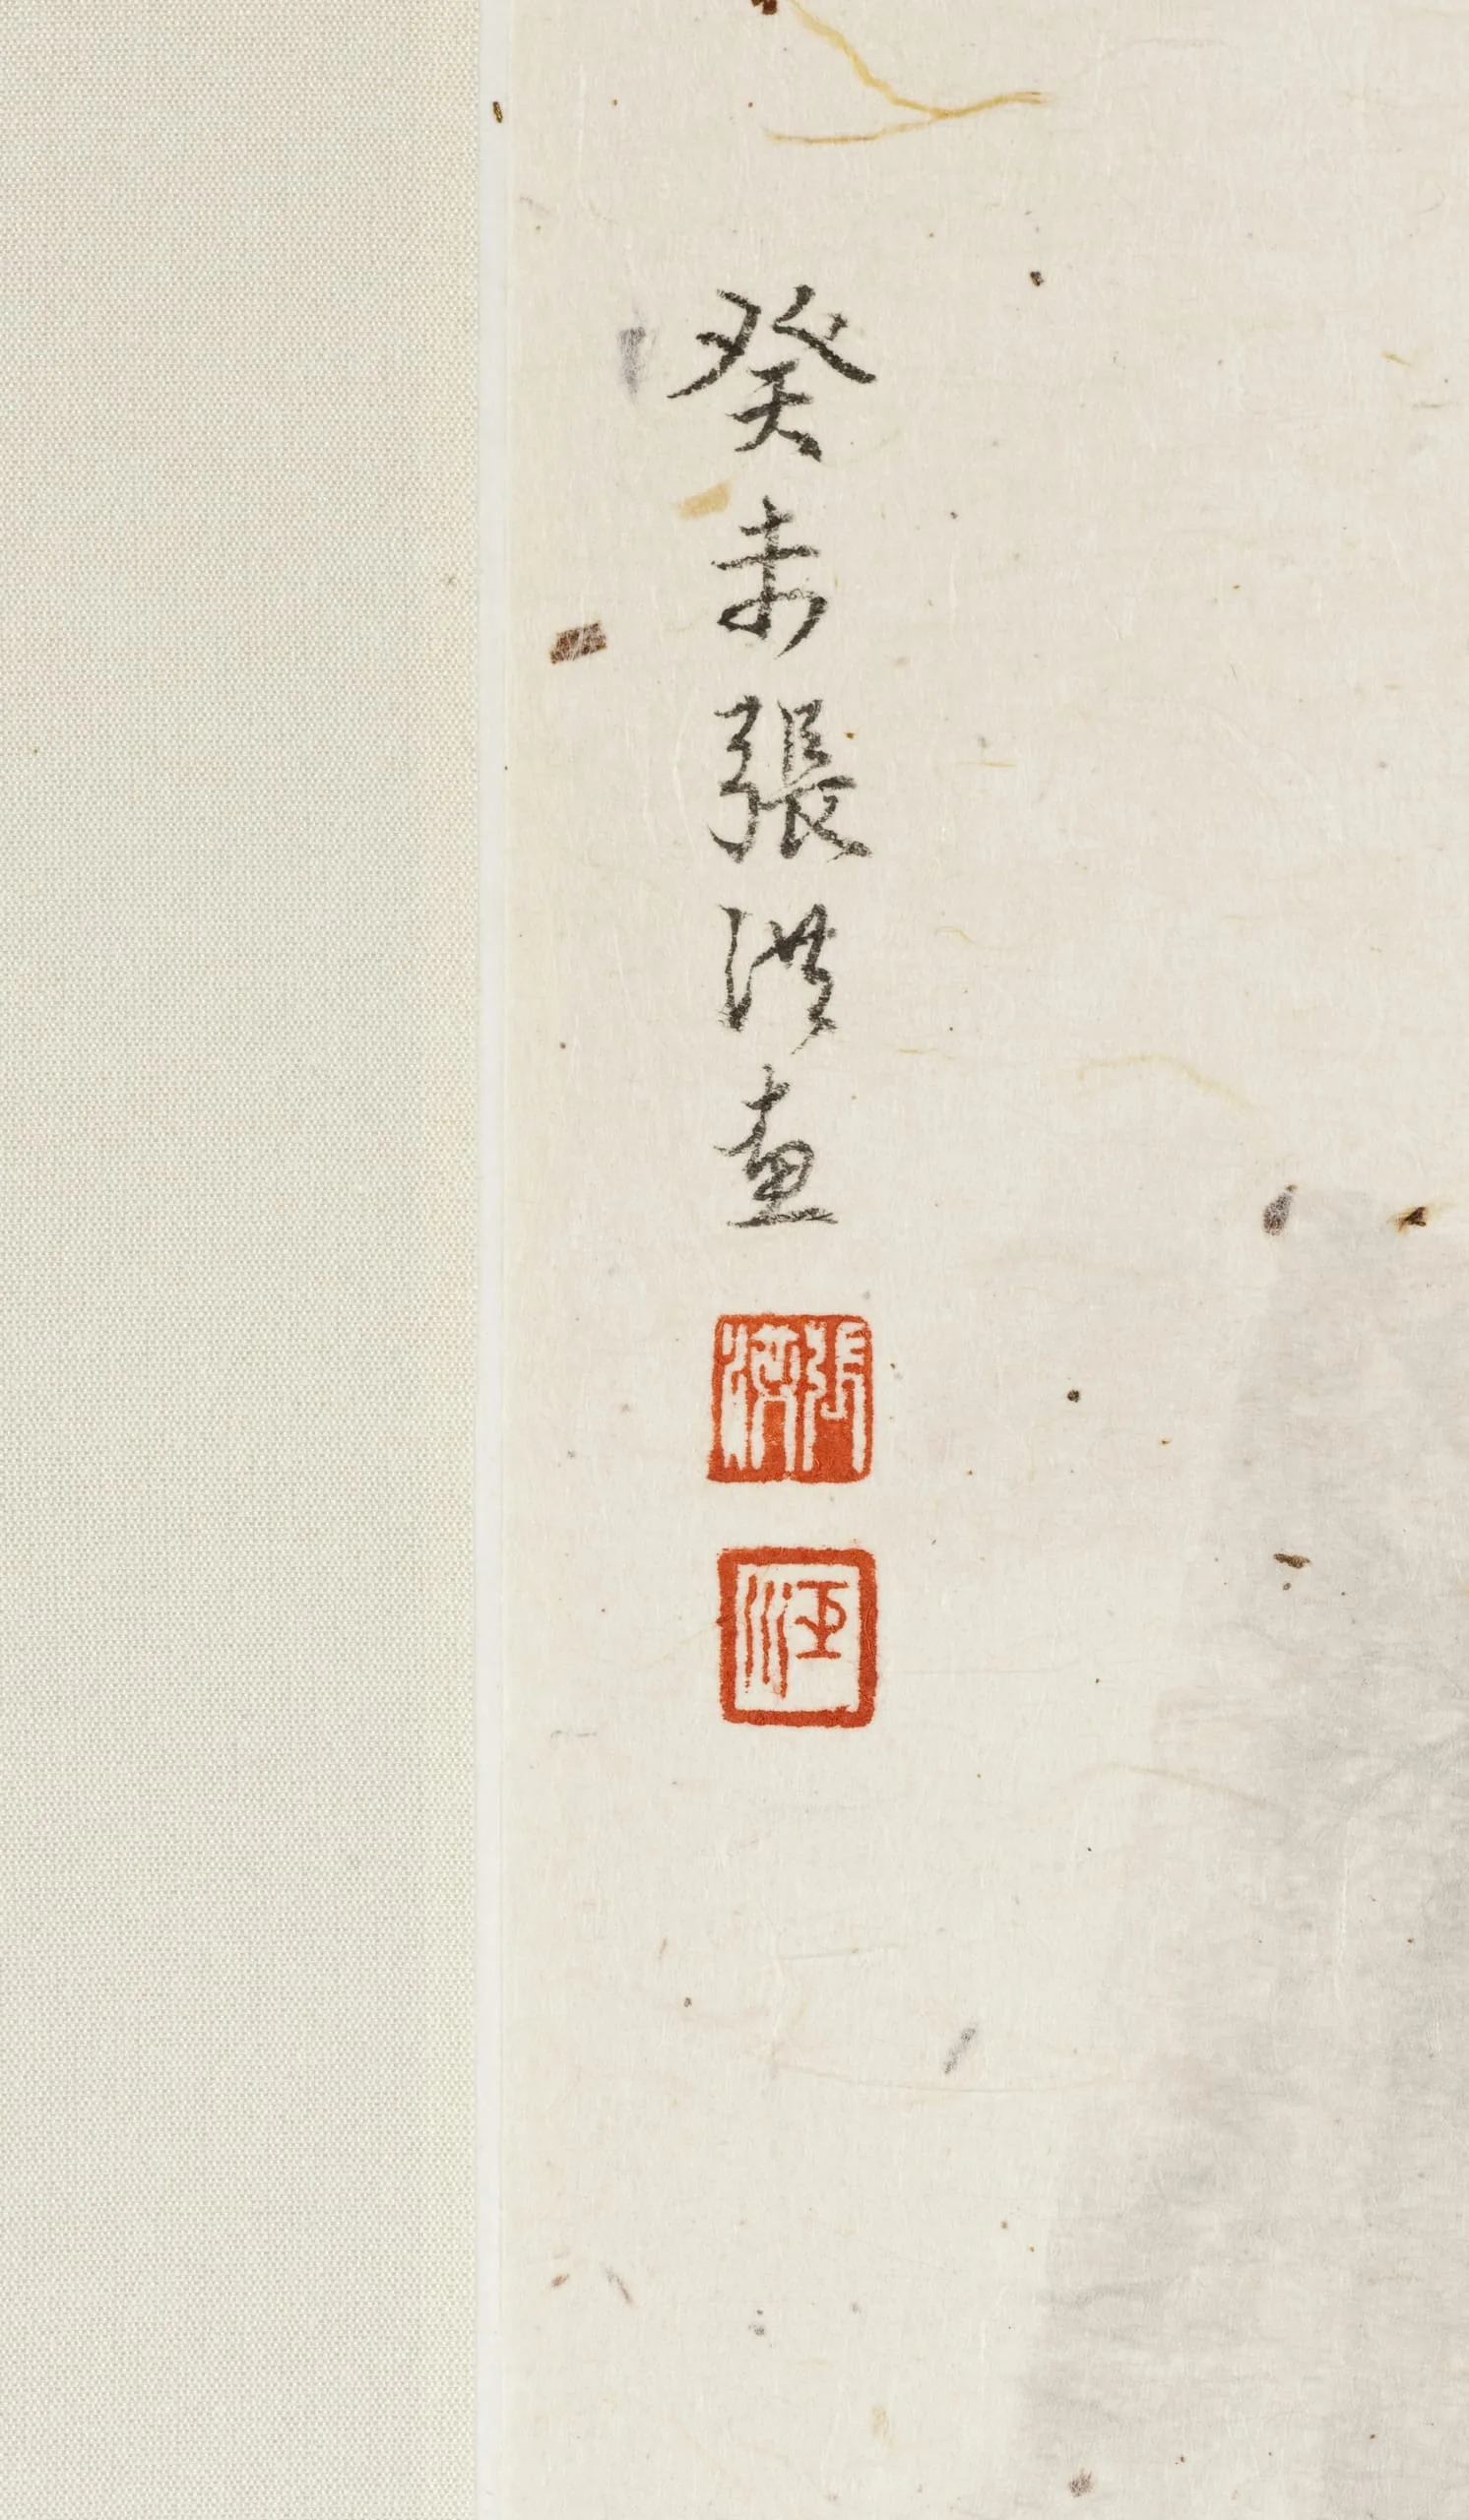 癸未張洪畫
張洪